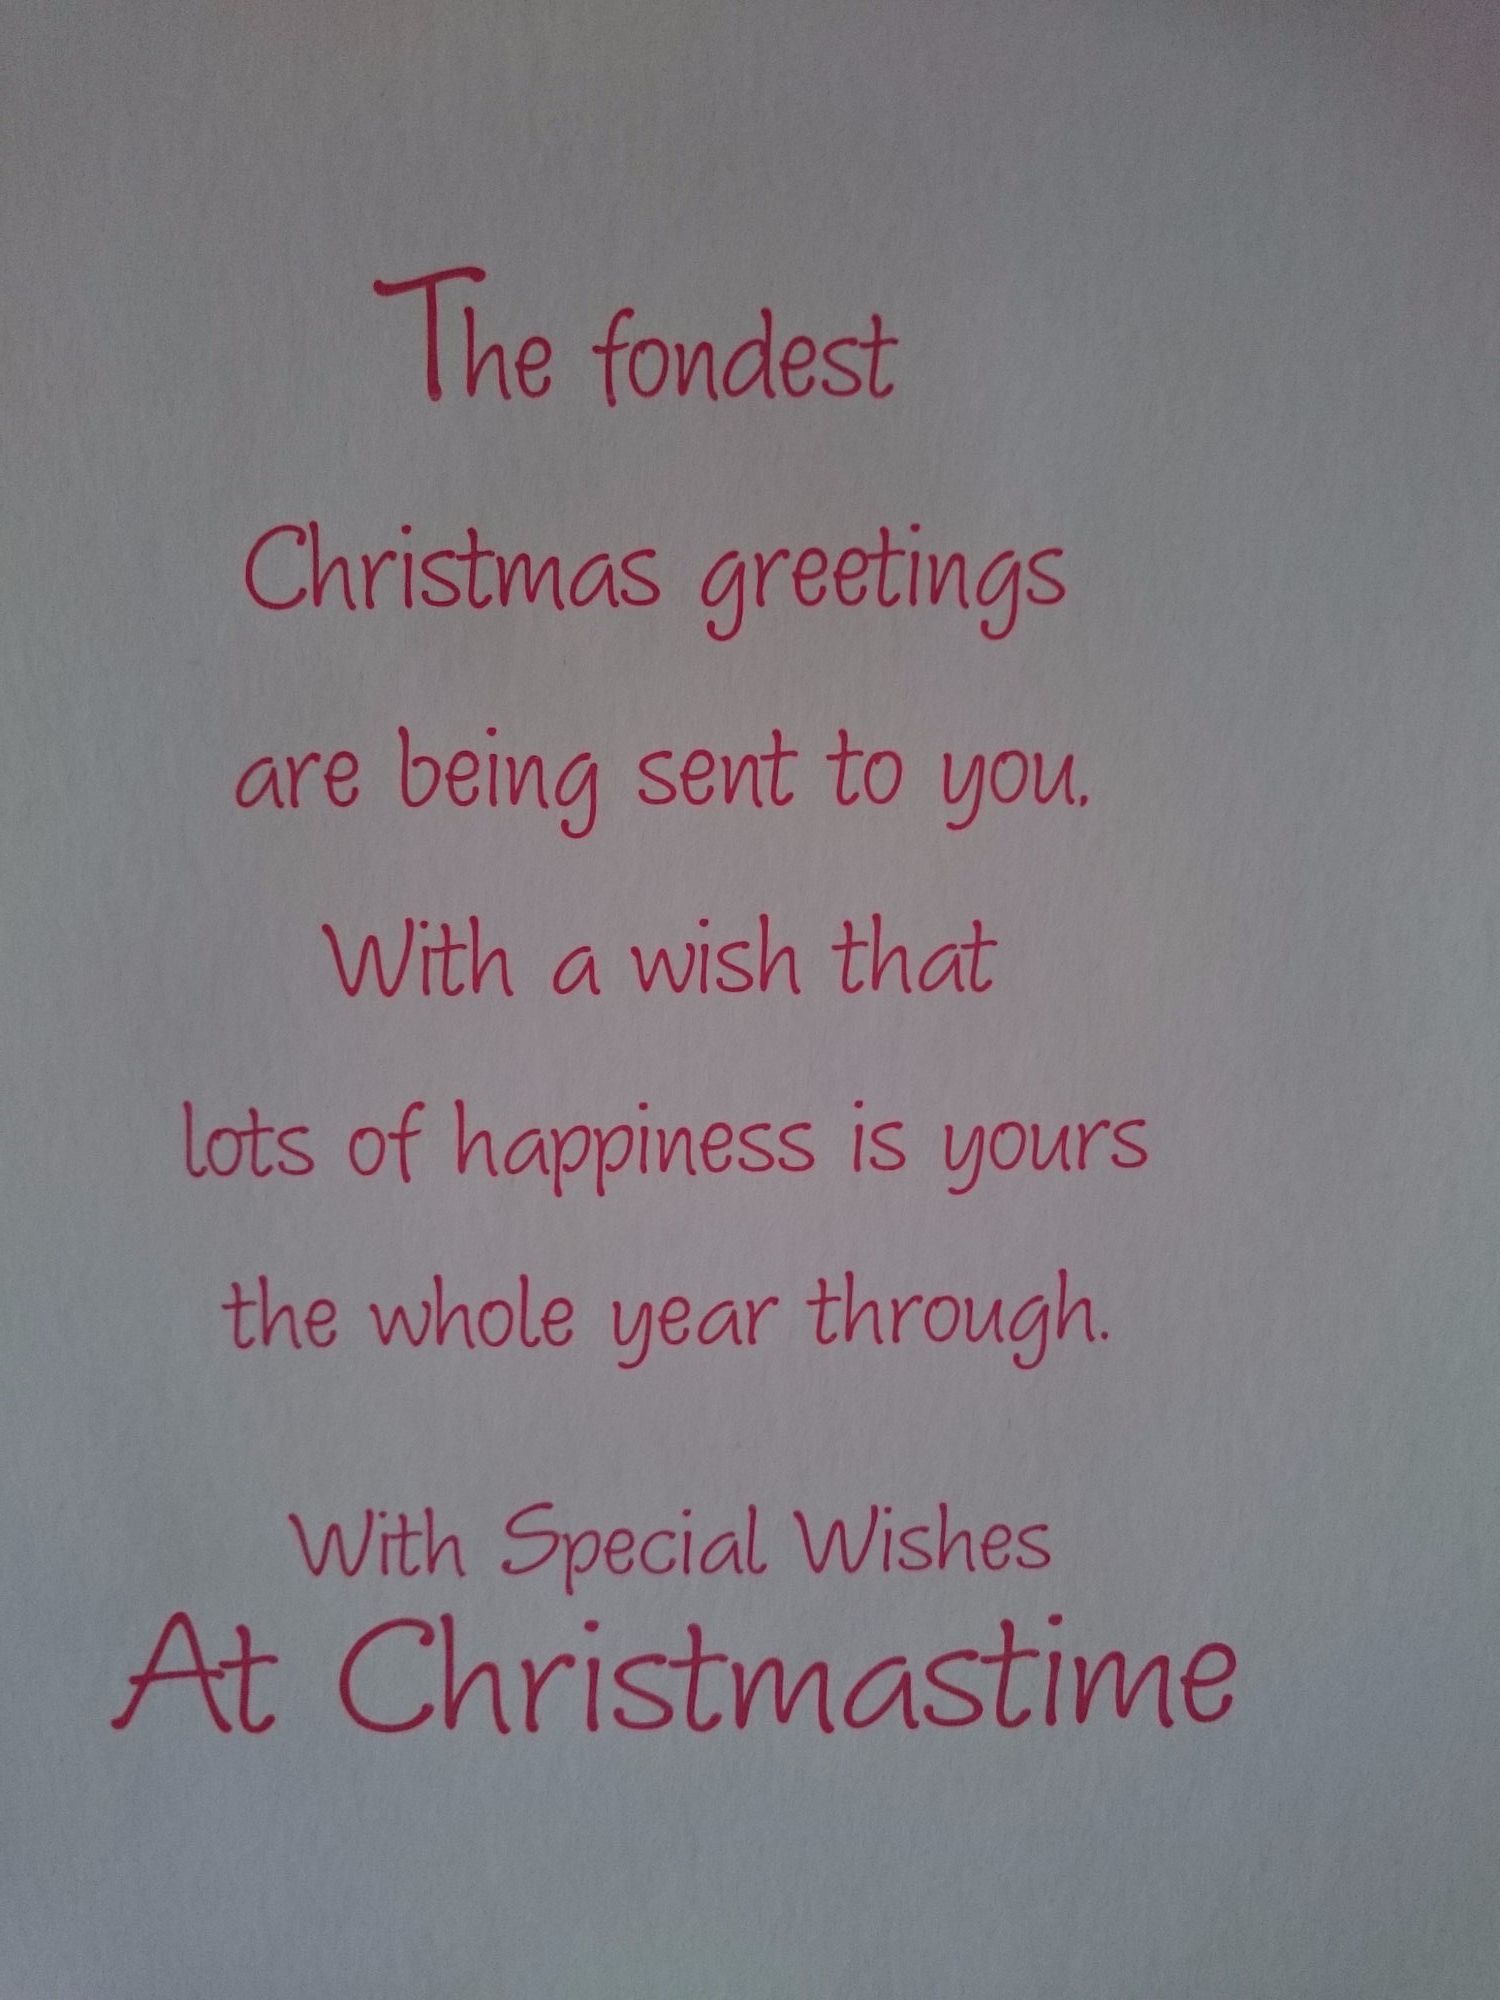 The fondest
Christmas greetings
are being sent to you.
With a wish that
lots of happiness is yours
the whole year through.
With Special Wishes
At Christmastime